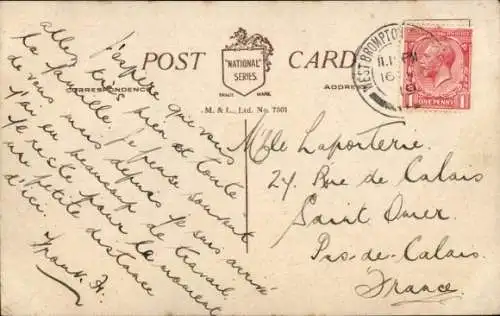 POST CARD
"NATIONAL"
SERIES
TRADE MARK.
CORRESPONDENCE
ADDRESS
M. & L., Ltd. No. 7501
WEST BROMPTON
11.15 PM
16
POSTAGE
ONE PENNY
J'espère que vous
allez très bien et toute
la famille. Je pense souvent
de vous mais depuis je suis arrivé
j'ai eu beaucoup de travail.
Je reste pour le moment
un petite distance
d'ici.
Mlle Laporterie.
24 Rue de Calais
Saint Omer
Pas-de-Calais.
France.